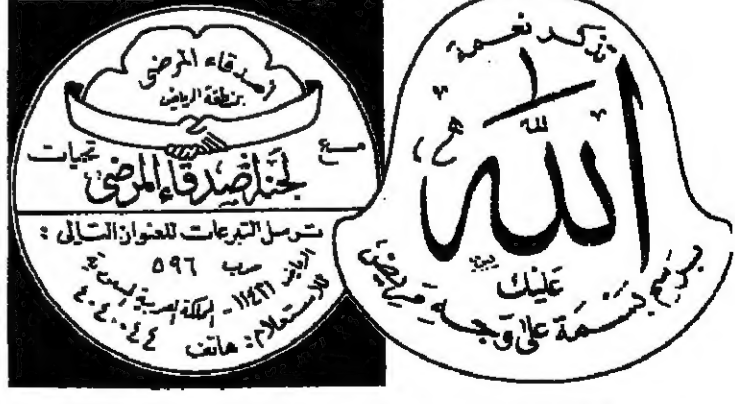 تذكر نعمة
الله
عليك
برسم بسمة على وجه مريض
أصدقاء المرضى
بمنطقة الرياض
مع تحيات
لجنة أصدقاء المرضى
ترسل التبرعات للعنوان التالي :
ص ب ٥٩٦
الرياض ١١٤٣١ - المملكة العربية السعودية
للاستعلام : هاتف ٤٠٤٠٠٤٤